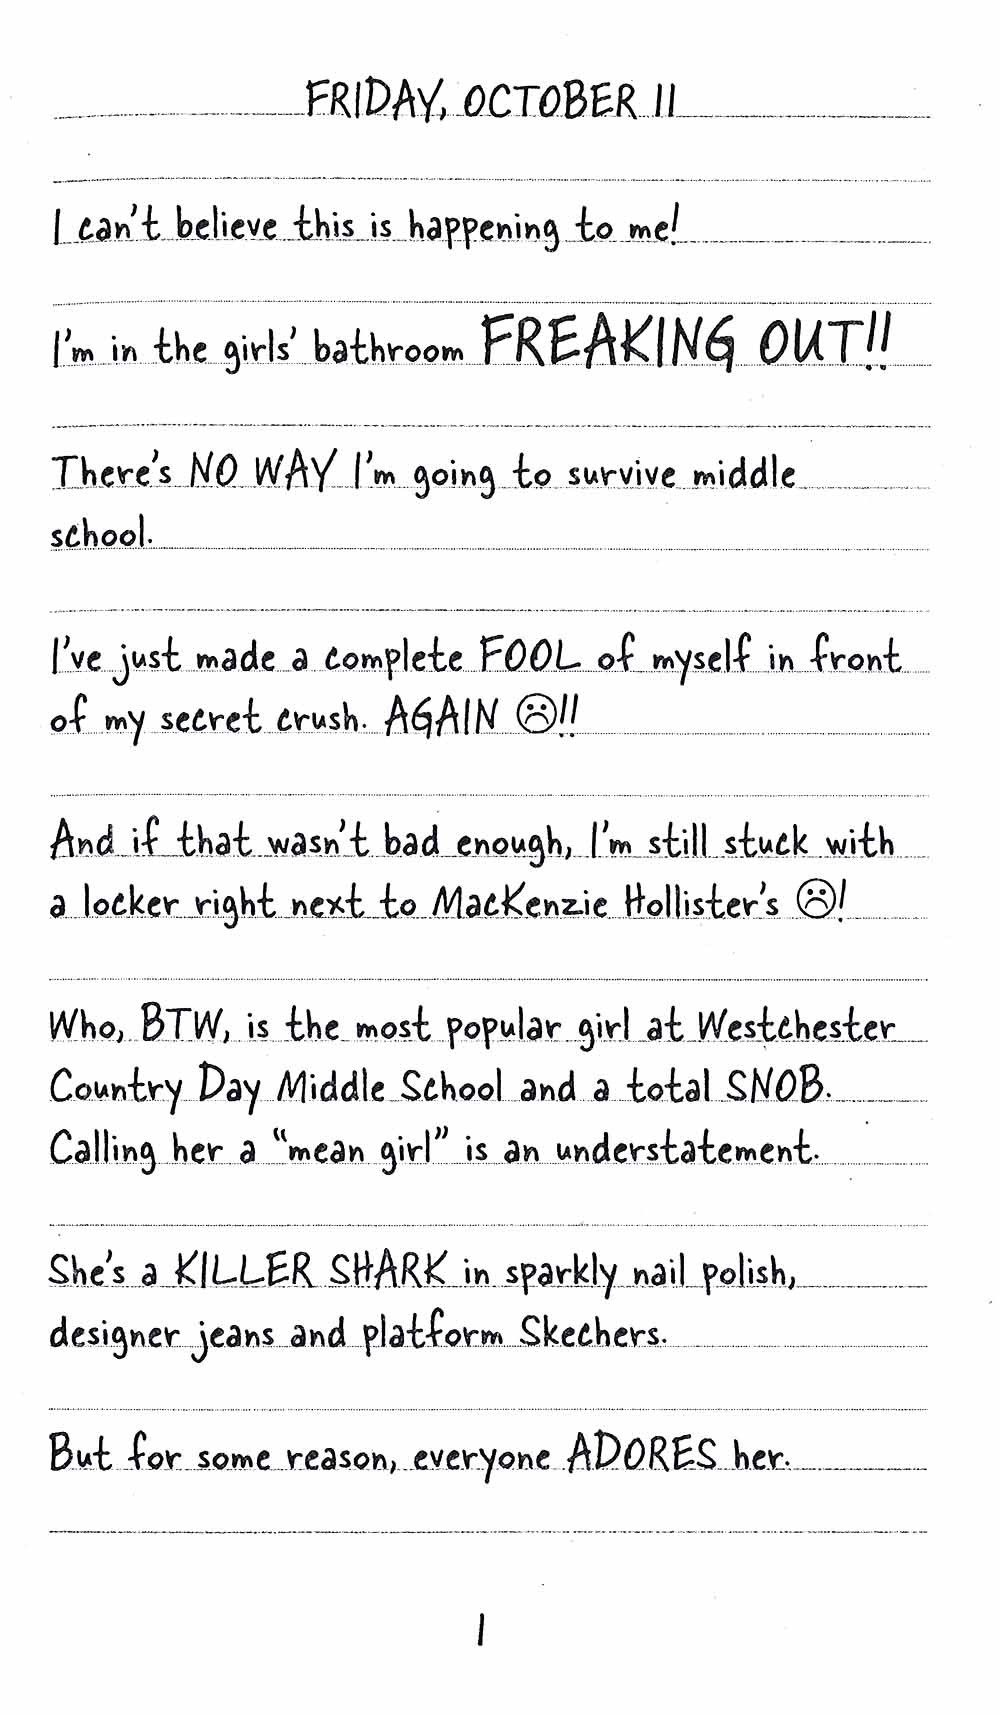 FRIDAY, OCTOBER 11
I can't believe this is happening to me!
I'm in the girls' bathroom FREAKING OUT!!
There's NO WAY I'm going to survive middle
school.
I've just made a complete FOOL of myself in front
of my secret crush. AGAIN ☹!!
And if that wasn't bad enough, I'm still stuck with
a locker right next to MacKenzie Hollister's ☹!
Who, BTW, is the most popular girl at Westchester
Country Day Middle School and a total SNOB.
Calling her a “mean girl” is an understatement.
She's a KILLER SHARK in sparkly nail polish,
designer jeans and platform Skechers.
But for some reason, everyone ADORES her.
1